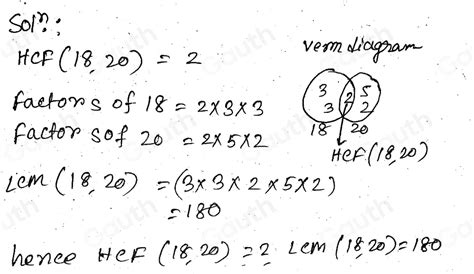 Solⁿ:
HCF (18, 20) = 2
Venn diagram
factors of 18 = 2×3×3
factor sof 20 = 2×5×2
3 2 5
3 2
18 20
HCF(18,20)
LCM (18, 20) = (3×3×2×5×2)
=180
hence HCF (18, 20) = 2 LCM (18,20)=180